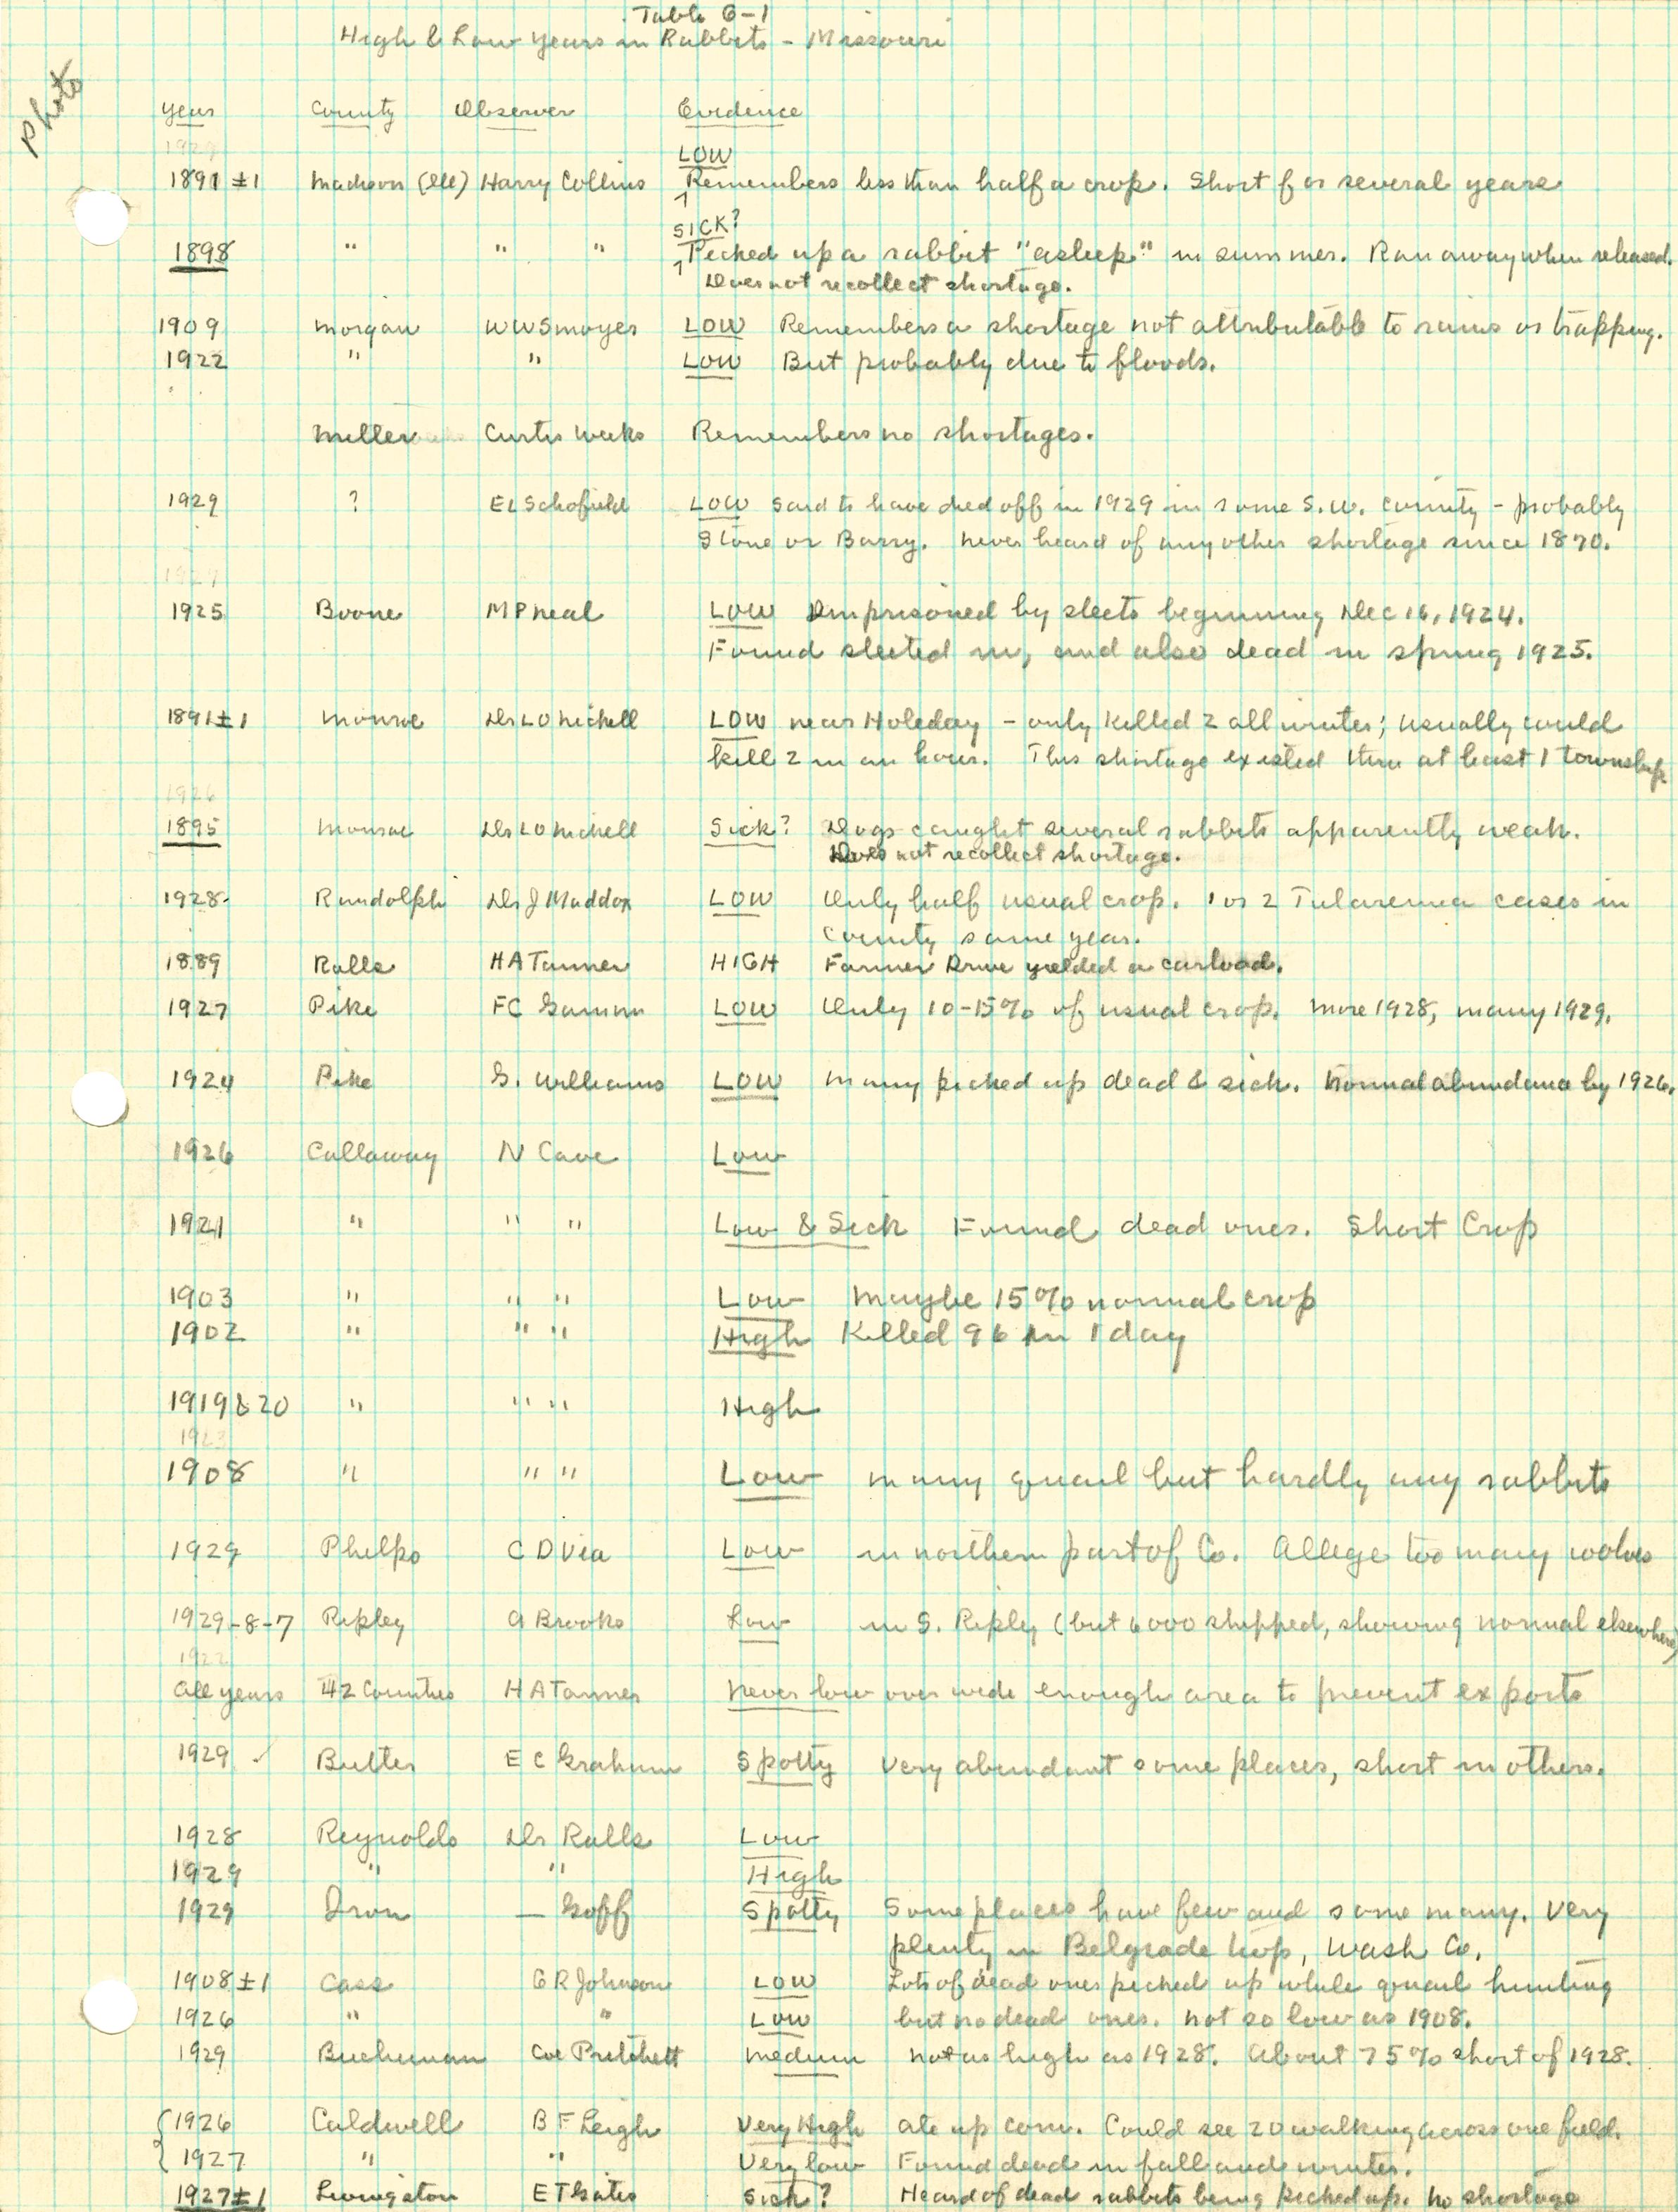 Table 6-1
High & Low years in Rabbits - Missouri
Photo
Year County Observer Evidence
1929
LOW
1891 ±1 Madison (Ill) Harry Collins Remembers less than half a crop. Short for several years
SICK?
1898 " " " Picked up a rabbit "asleep" in summer. Ran away when released.
Does not recollect shortage.
1909 Morgan W W Smoyer LOW Remembers a shortage not attributable to rains or trapping.
1922 " " LOW But probably due to floods.
Miller Curtis Weeks Remembers no shortages.
1929 ? E L Schofield LOW Said to have died off in 1929 in some S.W. County - probably
Stone or Barry. Never heard of any other shortage since 1870.
1927
1925 Boone M P Neal LOW Imprisoned by sleets beginning Dec 16, 1924.
Found sleeted in, and also dead in spring 1925.
1891±1 Monroe Dr L O Nichell LOW near Holiday - only killed 2 all winter; usually could
kill 2 in an hour. This shortage existed thru at least 1 township
1926
1895 Monroe Dr L O Nichell Sick? Dogs caught several rabbits apparently weak.
Does not recollect shortage.
1928 Randolph Dr J Maddox LOW Only half usual crop. 1 or 2 Tularemia cases in
County same year.
1889 Ralls H A Tanner HIGH Farmer Drive yielded a carload.
1927 Pike F C Gamm LOW Only 10-15% of usual crop. More 1928, many 1929.
1924 Pike G. Williams LOW Many picked up dead & sick. Normal abundance by 1926.
1926 Callaway N Cave Low
1921 " " " Low & Sick Found dead ones. Short Crop
1903 " " " Low Maybe 15% normal crop
1902 " " " High Killed 96 in 1 day
1919 & 20 " " " High
1923
1908 " " " Low Many quail but hardly any rabbits
1929 Phelps C D Via Low in northern part of Co. Allege too many wolves
1929-8-7 Ripley A Brooks Low in S. Ripley (but 6000 shipped, showing normal elsewhere)
1922
All years 42 Counties H A Tanner Never low over wide enough area to prevent exports
1929 ✓ Butler E C Graham Spotty Very abundant some places, short in others.
1928 Reynolds Dr Ralls Low
1929 " " High
1929 Iron — Goff Spotty Some places have few and some many. Very
plenty in Belgrade twp, Wash Co.
1908±1 Cass G R Johnson LOW Lots of dead ones picked up while quail hunting
1926 " " LOW but no dead ones. Not so low as 1908.
1929 Buchanan Col Pritchett Medium Not as high as 1928. About 75% short of 1928.
{1926 Caldwell B F Leigh Very High Ate up corn. Could see 20 walking across one field.
{1927 " " Very low Found dead in fall and winter.
1927±1 Livingston E T Gates Sick? Heard of dead rabbits being picked up. No shortage